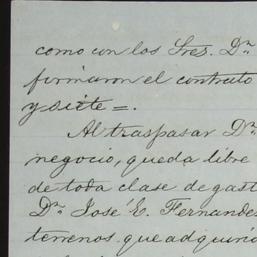 como con los Sres. Dn
firmaron el contrato
y siete =.
Al traspasar Dn
negocio, queda libre
de toda clase de gast
Dn José E. Fernande
terrenos que adquirió